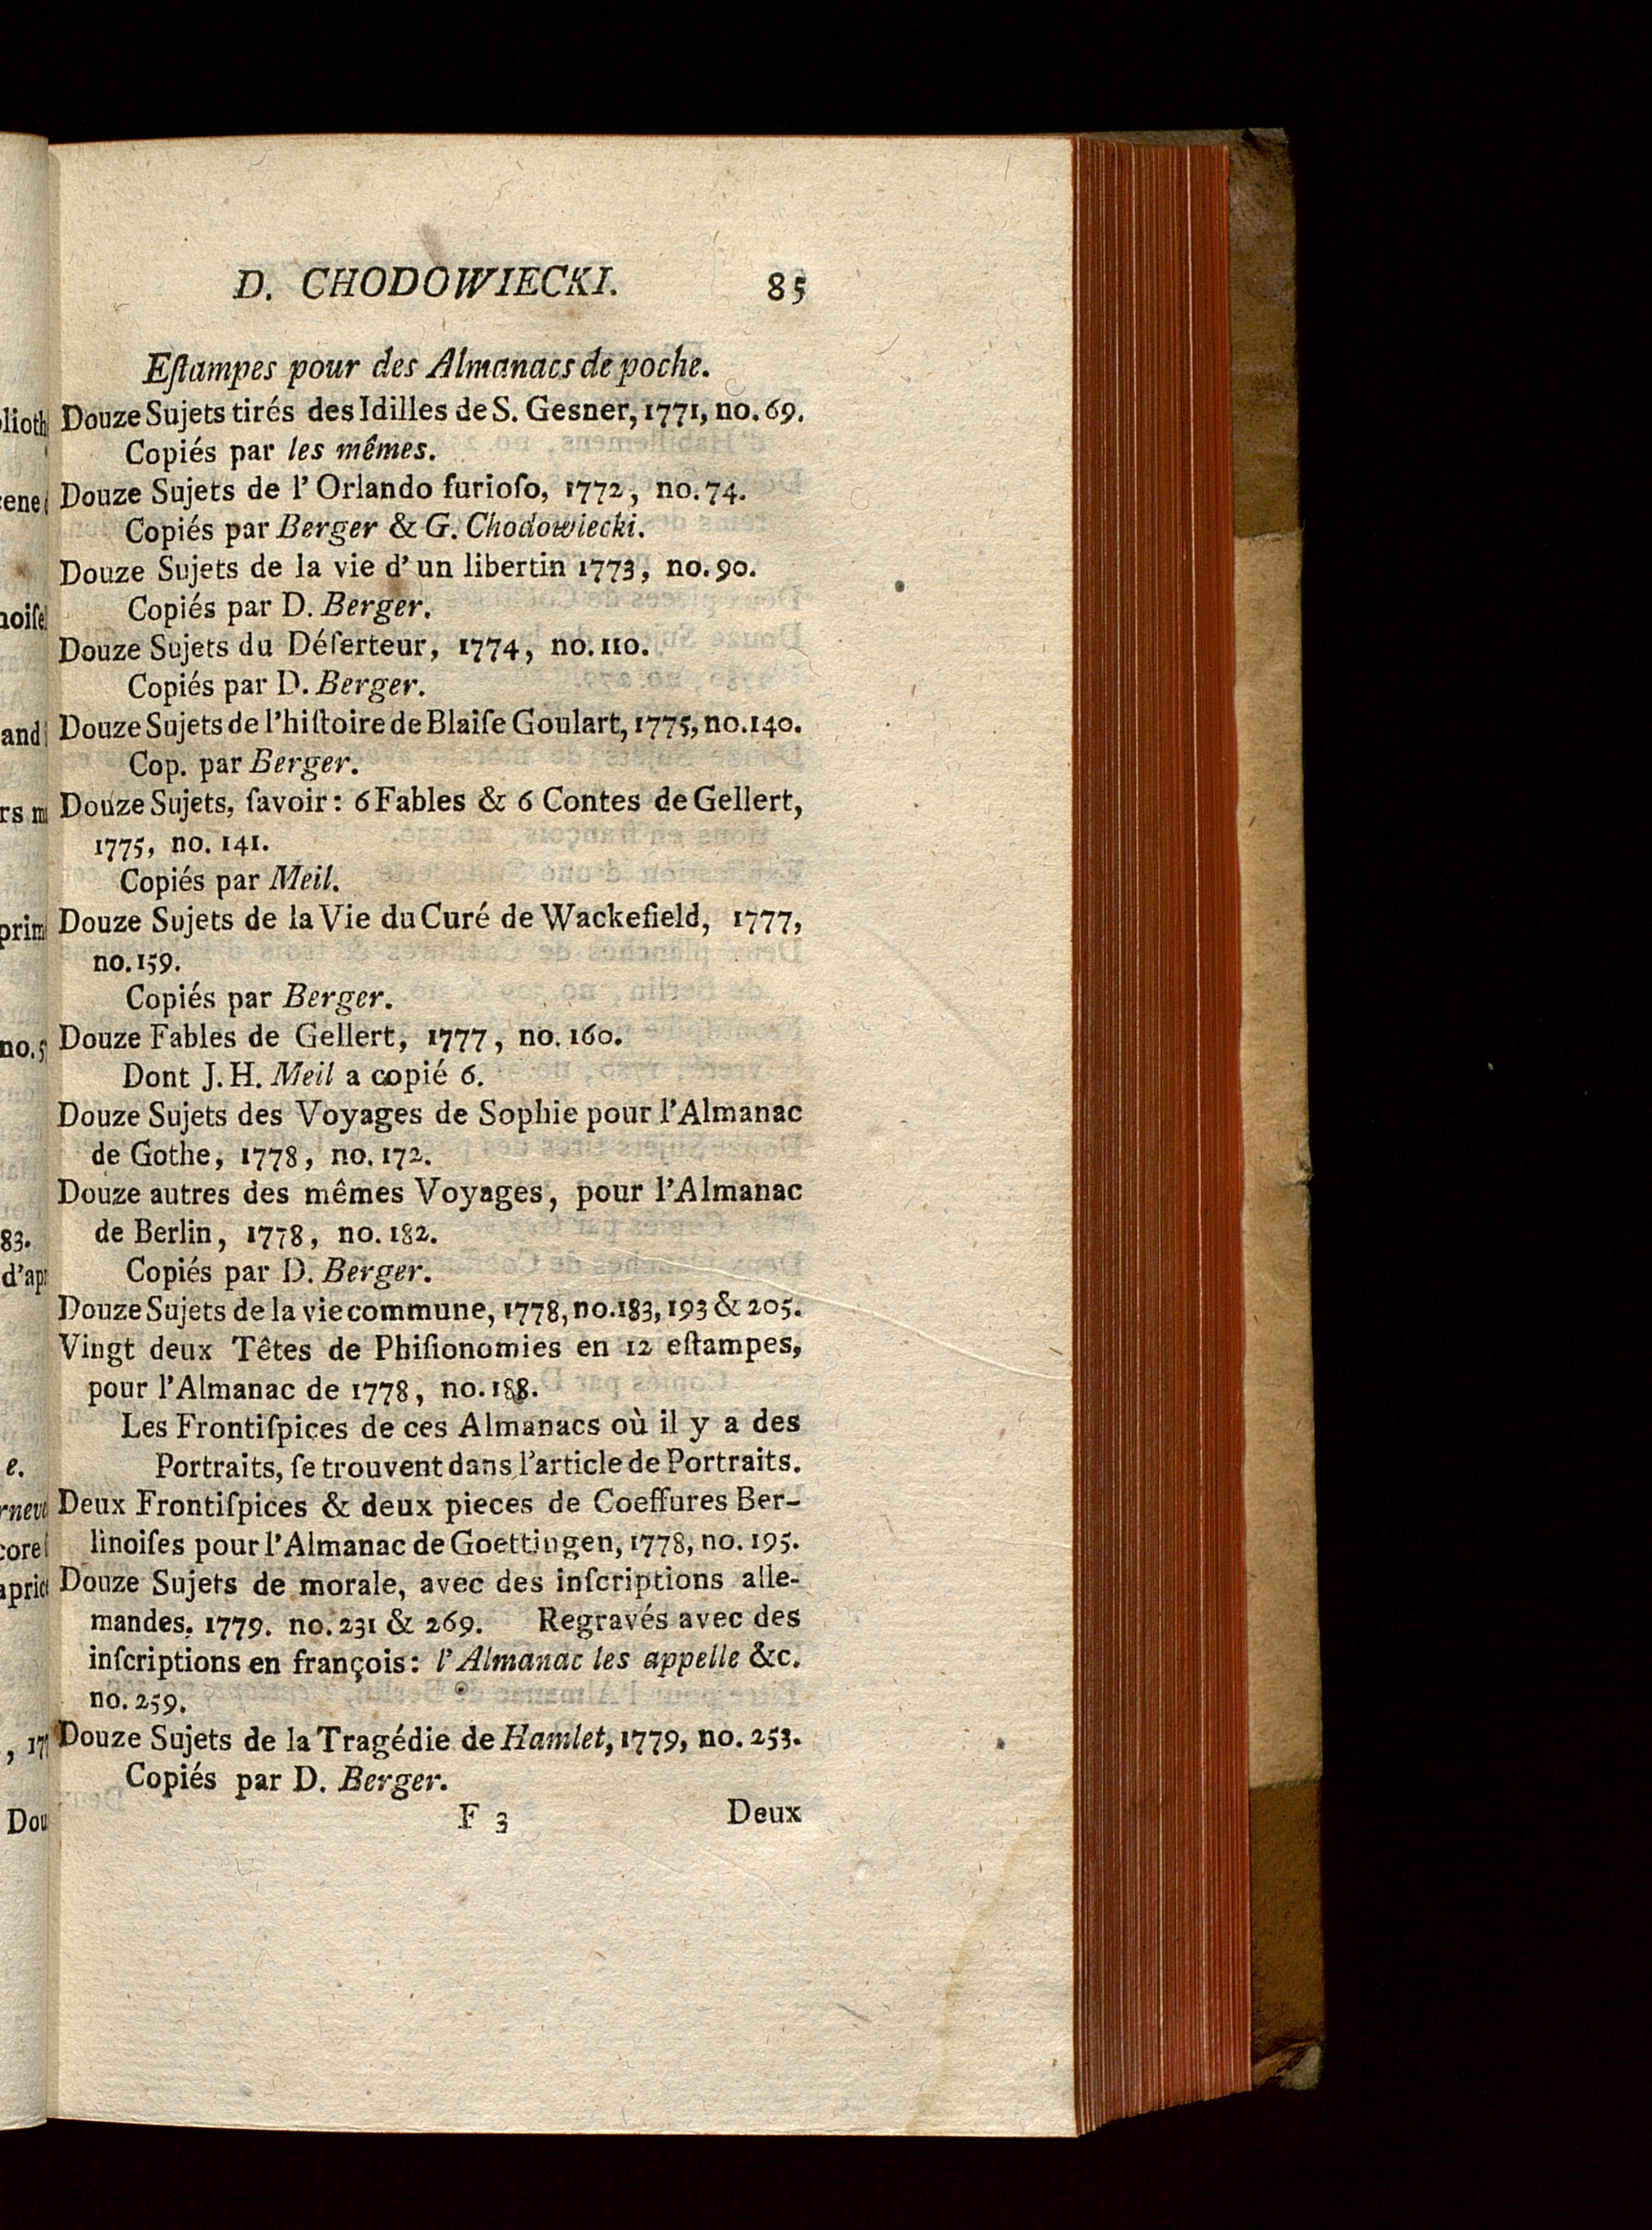 D. CHODOWIECKI. 85
Eſtampes pour des Almanacs de poche.
Douze Sujets tirés des Idilles de S. Gesner, 1771, no. 69.
Copiés par les mêmes.
Douze Sujets de l'Orlando furioſo, 1772, no. 74.
Copiés par Berger & G. Chodowiecki.
Douze Sujets de la vie d'un libertin 1773, no. 90.
Copiés par D. Berger.
Douze Sujets du Déſerteur, 1774, no. 110.
Copiés par D. Berger.
Douze Sujets de l'hiſtoire de Blaiſe Goulart, 1775, no. 140.
Cop. par Berger.
Douze Sujets, ſavoir: 6 Fables & 6 Contes de Gellert,
1775, no. 141.
Copiés par Meil.
Douze Sujets de la Vie du Curé de Wackefield, 1777,
no. 159.
Copiés par Berger.
Douze Fables de Gellert, 1777, no. 160.
Dont J. H. Meil a copié 6.
Douze Sujets des Voyages de Sophie pour l'Almanac
de Gothe, 1778, no. 172.
Douze autres des mêmes Voyages, pour l'Almanac
de Berlin, 1778, no. 182.
Copiés par D. Berger.
Douze Sujets de la vie commune, 1778, no. 183, 193 & 205.
Vingt deux Têtes de Phiſionomies en 12 eſtampes,
pour l'Almanac de 1778, no. 188.
Les Frontiſpices de ces Almanacs où il y a des
Portraits, ſe trouvent dans l'article de Portraits.
Deux Frontiſpices & deux pieces de Coeffures Ber-
linoiſes pour l'Almanac de Goettingen, 1778, no. 195.
Douze Sujets de morale, avec des inſcriptions alle-
mandes. 1779. no. 231 & 269. Regravés avec des
inſcriptions en françois: l'Almanac les appelle &c.
no. 259.
Douze Sujets de la Tragédie de Hamlet, 1779, no. 253.
Copiés par D. Berger.
F 3 Deux